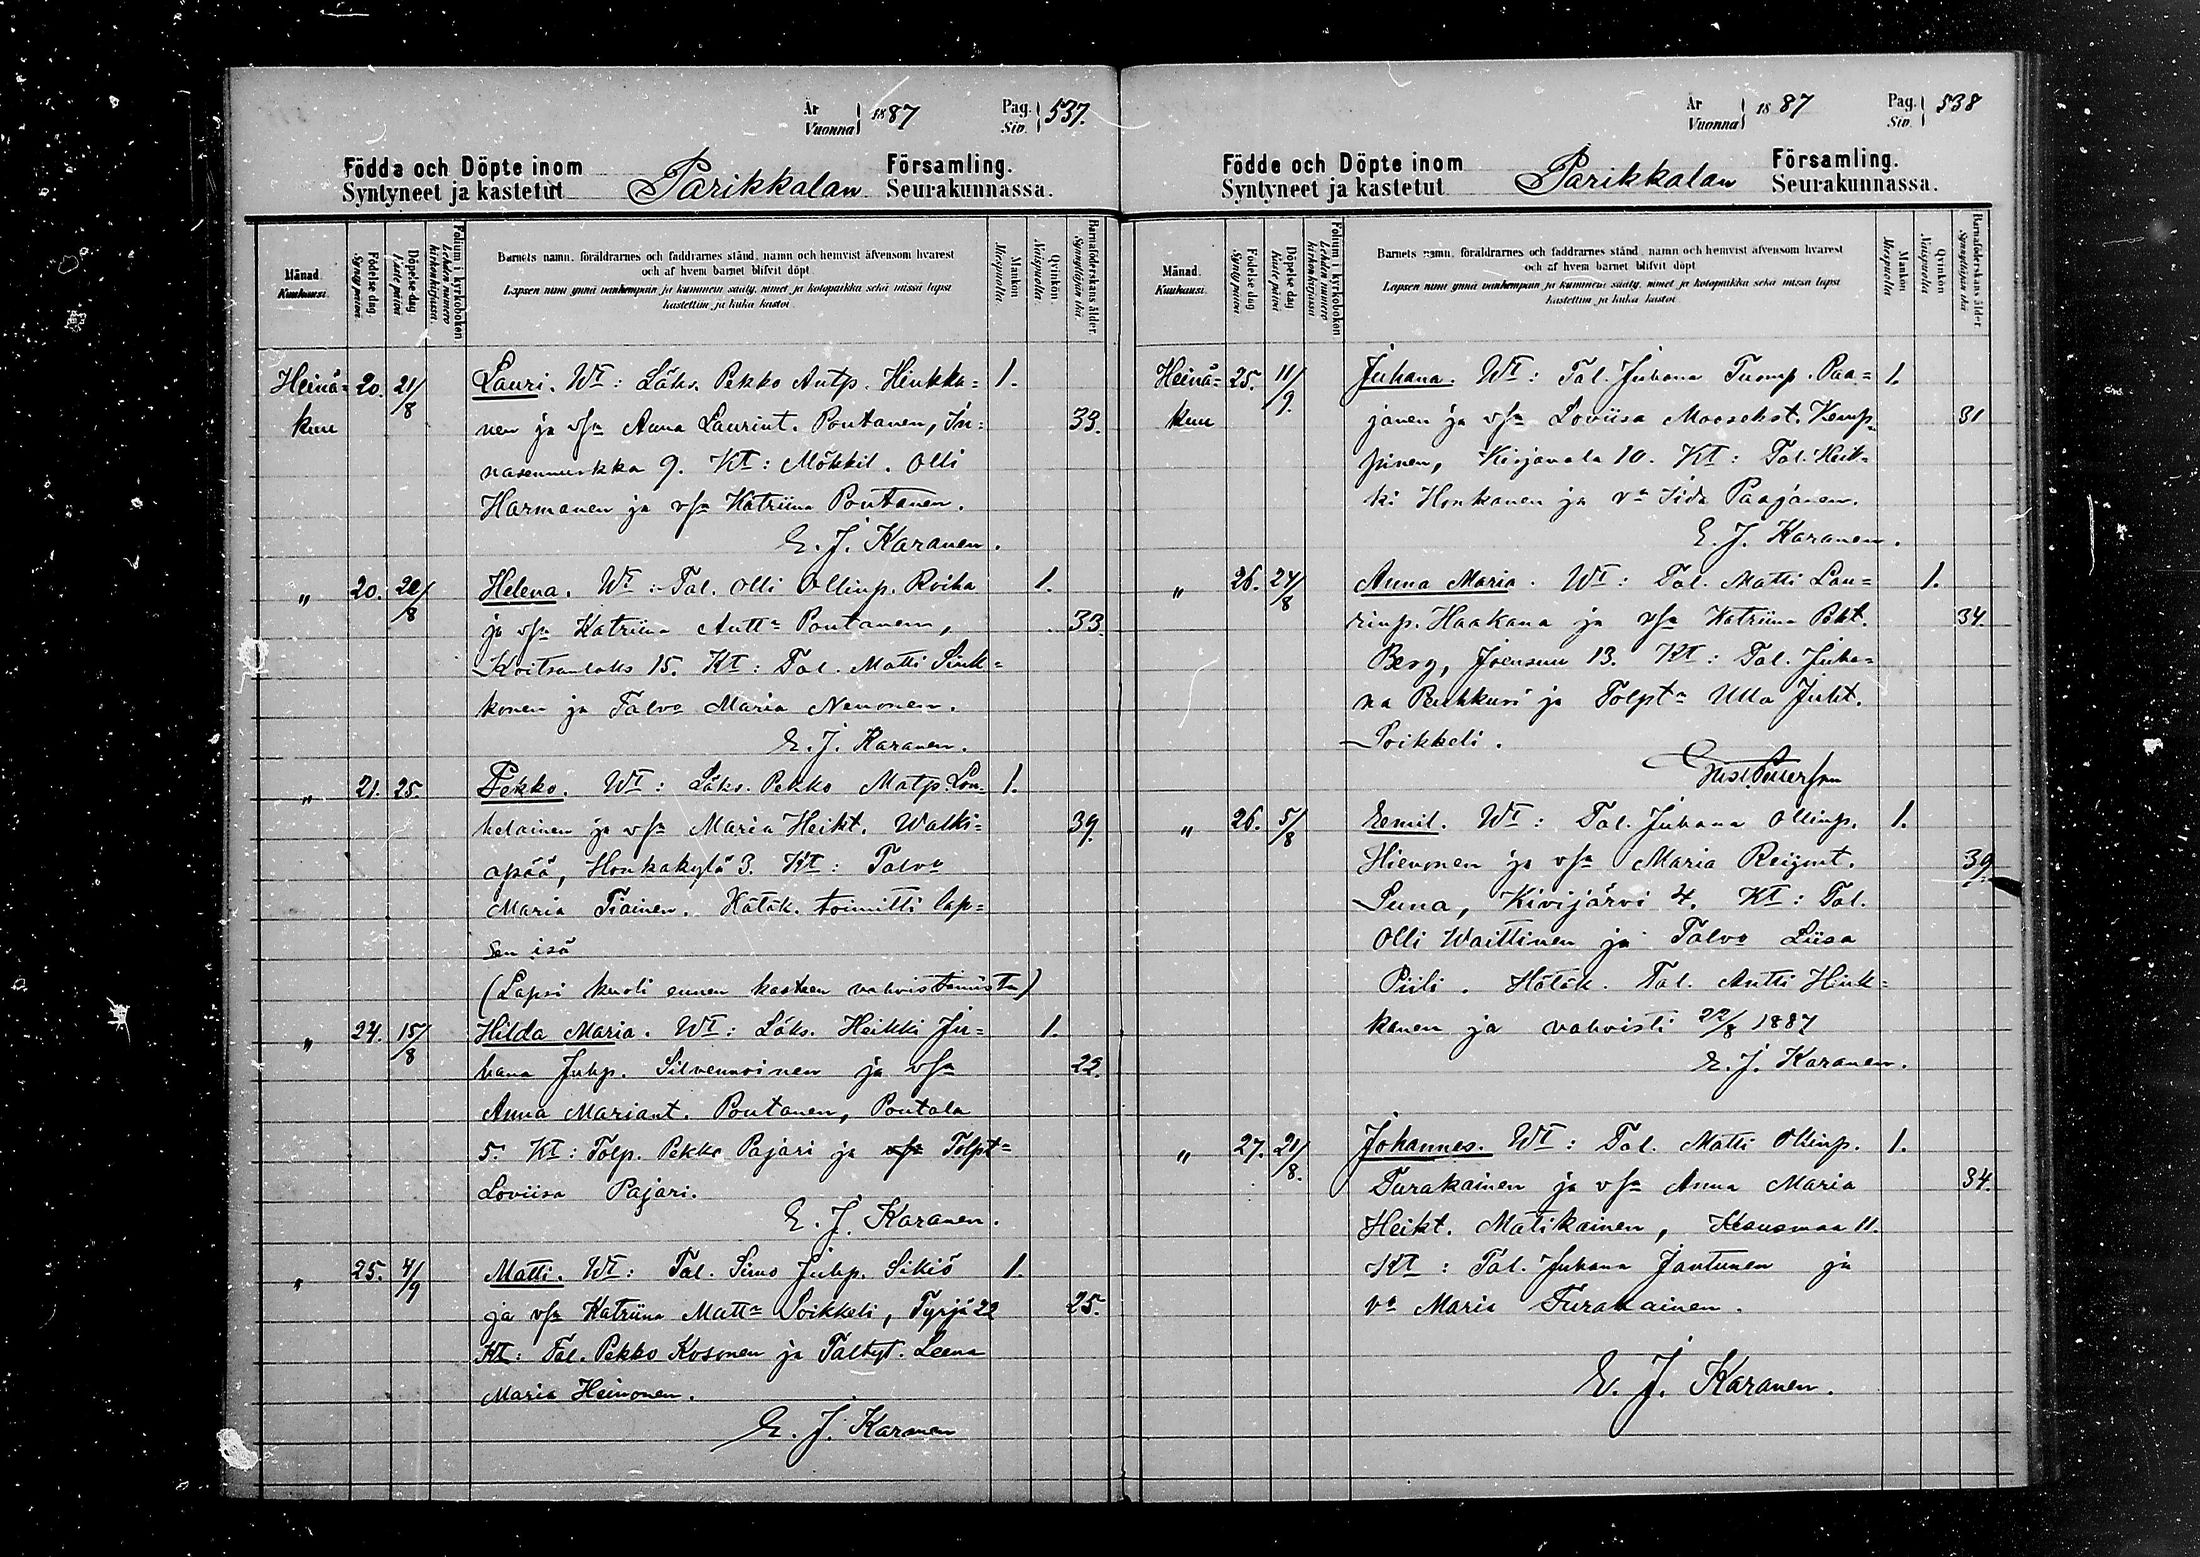 År
Vuonna
1887
Pag.
Siv.
537.
Födda och Döpte inom
Syntyneet ja kastetut
Parikkalan
Församling.
Seurakunnassa.
Månad.
Kuukausi.
Födelse dag
Synty päivä.
Döpelse dag
Kaste päivä
Folium i kyrkoboken
Lehden numero kirkonkirjassa.
Barnets namn, föräldrarnes och faddrarnes stånd, namn och hemvist äfvensom hvarest
och af hvem barnet blifvit döpt.
Lapsen nimi ynnä vanhempain ja kummein sääty, nimet ja kotopaikka sekä missä lapsi
kastettiin ja kuka kastoi.
Mankön
Miespuolia.
Qvinkön
Naispuolia.
Barnaföderskans ålder.
Synnyttäjän ikä
Heinä= 20. 21/8 Lauri. Wt: Läks. Pekko Antp. Hinkka= 1.
kuu nen ja vsa Anna Laurint. Pontanen, In= 33.
nasenmurkka 9. Kt: Mökkil. Olli
Harmanen ja vsa Katriina Pontanen.
E. J. Karanen.
" 20. 20/8 Helena. Wt: Tal. Olli Ollinp. Roiha 1.
ja vsa Katriina Antta Pontanen, 33.
Koitsanlaks 15. Kt: Tal. Matti Sink=
konen ja Talva Maria Nenonen.
E. J. Karanen.
" 21. 25. Pekko. Wt: Läks. Pekko Matp. Lou= 1.
helainen ja vsa Maria Heikt. Walki= 39.
apää, Honkakylä 3. Kt: Talva
Maria Tiainen. Hätäk. toimitti lap=
sen isä
(Lapsi kuoli ennen kasteen vahvistamista)
" 24. 15/8 Hilda Maria. Wt: Läks. Heikki Ju= 1.
hana Juhp. Silvennoinen ja vsa 22.
Anna Mariant. Pontanen, Pontala
5. Kt: Tolp. Pekko Pajari ja vsa Tolpt=
Loviisa Pajari.
E. J. Karanen.
" 25. 4/9 Matti. Wt: Tal. Simo Juhp. Sikiö 1.
ja vsa Katriina Matta Poikkeli, Tyrjä 22 25.
Kt: Tal. Pekko Kosonen ja Taltyt. Leena
Maria Heinonen.
E. J. Karanen
År
Vuonna
1887
Pag.
Siv.
538
Födde och Döpte inom
Syntyneet ja kastetut
Parikkalan
Församling.
Seurakunnassa.
Månad.
Kuukausi.
Födelse dag
Synty päivä.
Döpelse dag
Kaste päivä
Folium i kyrkoboken
Lehden numero kirkonkirjassa
Barnets namn, föräldrarnes och faddrarnes stånd, namn och hemvist äfvensom hvarest
och af hvem barnet blifvit döpt.
Lapsen nimi ynnä vanhempain ja kummein sääty, nimet ja kotopaikka sekä missä lapsi
kastettiin ja kuka kastoi.
Mankön
Miespuolia
Qvinkön
Naispuolia
Barnaföderskans ålder
Synnyttäjän ikä
Heinä= 25. 11/9. Juhana. Wt: Tal. Juhana Tuomp. Paa= 1.
kuu janen ja vsa Loviisa Moosekst. Kemp= 31
pinen, Kirjavala 10. Kt: Tal. Heik=
ki Honkanen ja va Iida Paajanen.
E. J. Karanen.
" 26. 24/8 Anna Maria. Wt: Tal. Matti Lau= 1.
rinp. Haakana ja vsa Katriina Pekt. 34.
Berg, Joensuu 13. Kt: Tal. Juha=
na Puhkuri ja Tolpta Ulla Juht.
Poikkeli.
" 26. 5/8 Eemil. Wt: Tal. Juhana Ollinp. 1.
Hievonen ja vsa Maria Reijont. 39.
Puna, Kivijärvi 4. Kt: Tal.
Olli Waittinen ja Talva Liisa
Piili. Hätäk. Tal. Antti Hink=
kanen ja vahvisti 22/8 1887
E. J. Karanen.
" 27. 21/8. Johannes. Wt: Tal. Matti Ollinp. 1.
Turakainen ja vsa Anna Maria 34.
Heikt. Matikainen, Kesusmaa 11.
Kt: Tal. Juhana Jantunen ja
va Maria Turakainen.
E. J. Karanen.